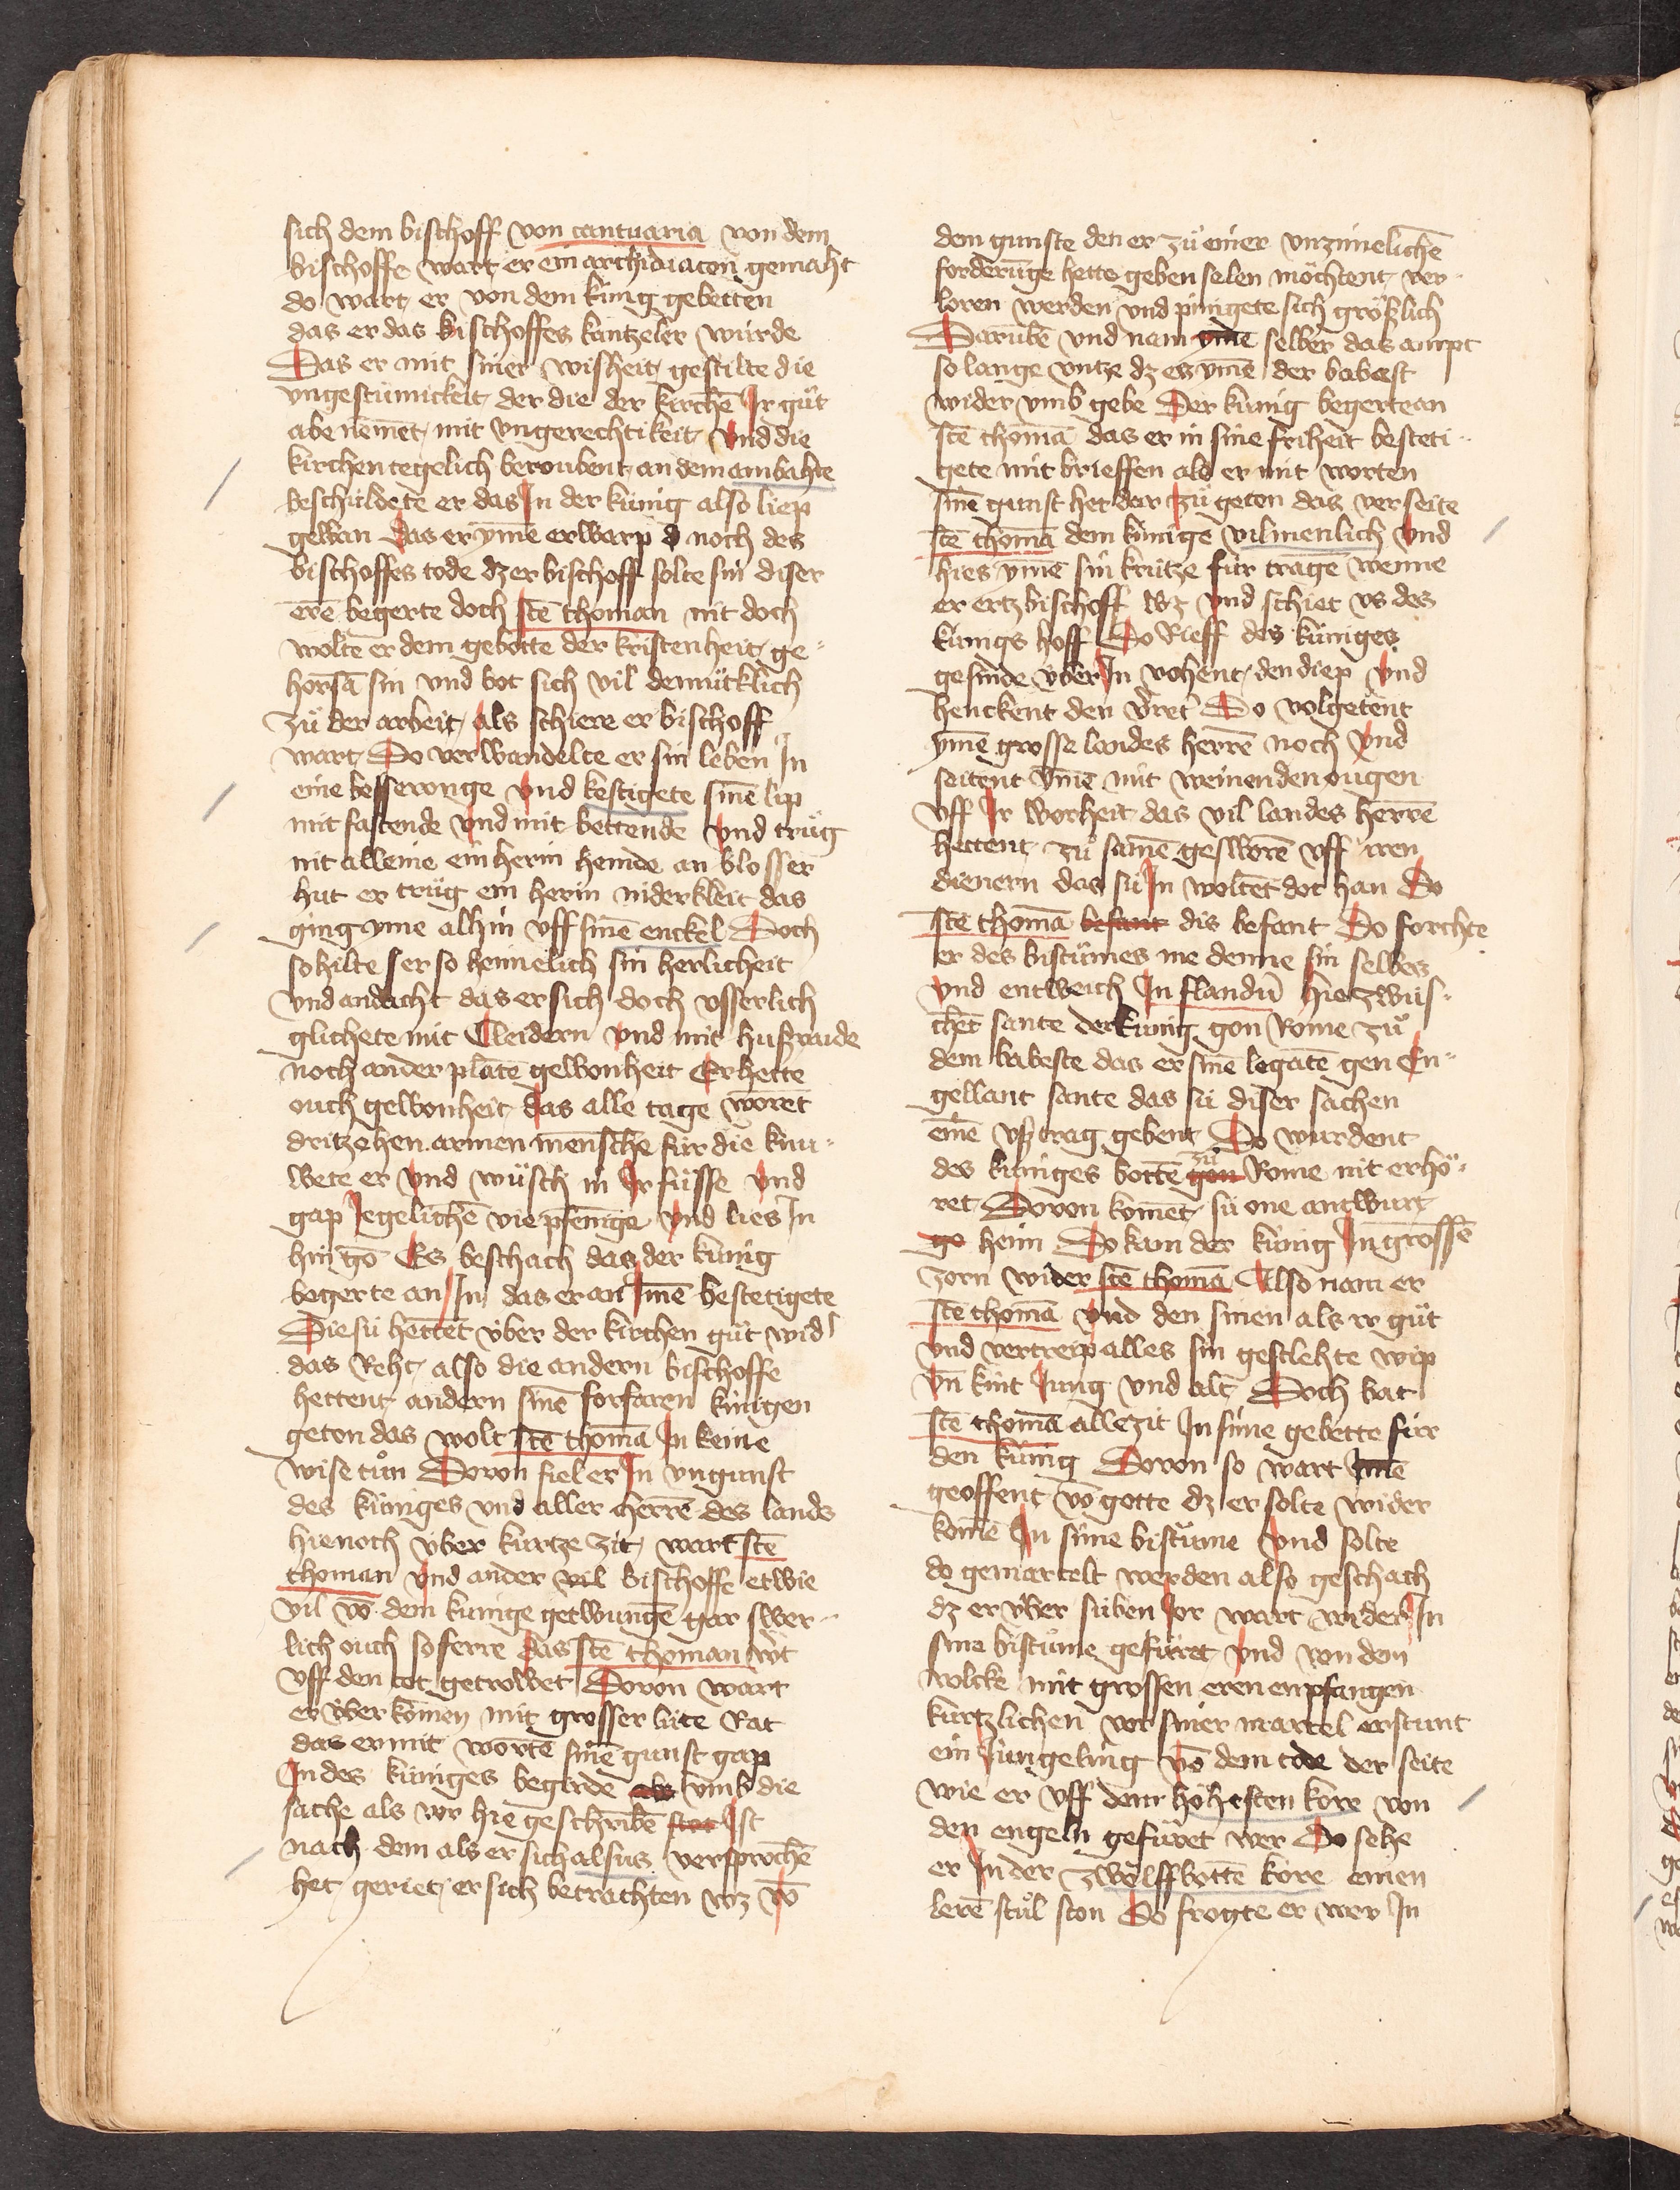 sich dem bischoff von cantuaria von dem
bischoffe wart er ein archidiacon gemaht
do wart er von dem künig gebetten
das er das bischoffes kantzeler würde
Das er mit siner wisheit gestilte die
vngestümickeit der die der kirchē Jr gůt
abe nēmēt mit vngerechtikeit vnd die
kirchen tegelich beroubent an dem ambahte
beschuldete er das Jn der künig also liep
gewan das er ymē erwarp d noch des
bischoffes tode dz er bischoff solte sin diser
erē begerte doch stē thoman nit doch
wolte er dem gebotte der kristenheit ge-
horsā sin vnd bot sich vil demütklich
zů der arbeit als schiere er bischoff
wart Do verwandelte er sin leben Jn
eine besseronge vnd kestigete sinē lip
mit fastende vnd mit bettende vnd trůg
nit alleine ein herin hemde an blosser
hut er trůg ein herin niderkleit das
ging yme alhin vff sinē enckel Doch
so hilte er so heimelich sin herlicheit
vnd andacht das er sich doch vsserlich
glichete mit Cleidern vnd mit husz rade
noch ander platē gewonheit Er hette
ouch gewonheit das alle tage worēt
dritzehen armen menschē für die knu-
wete er vnd wůsch in Jr füsse vnd
gap Jegelichē vie pfenige vnd lies Jn
hin gō Es beschach das der künig
begerte an Jn das er an Jmē bestetigete
Die sü hettēt über der kirchen gůt wid'
das Reht also die andern bischoffe
hettent andern sinē forfaren künigen
geton das wolt stē thomā Jn keine
wise tůn Dovon fiel er Jn vngunst
des küniges vnd aller herrē des lands
hienoch über kurtze zit wart stē
thoman vnd ander vil bischoffe etwie
vil vō dem kunige getwungē gar swer-
lich ouch so ferre das stē thoman wt
vff den tot getrowet Dovon wart
er über komen mit grosser lüte Rat
das er mit wortē sinē gunst gap
Jn des küniges begirde vmb die
sache als vor hie geschribē Jst
nach dem als er sich alsus versprochē
het geriet er sich betrachten wz vō
dem gunste den er zů einer vnzimelichē
forderūge hette geben selen möchtent ver-
loren werden vnd pinigete sich gröszlich
Darūbē vnd nam ymē selber das ampt
so lange vntze dz es ymē der babest
wider vmb gebe Der künig begerte an
stē thomā das er in sine friheit besteti-
gete mit brieffen als er mit worten
sinē gunst het dar zů geton das verseite
stē thomā dem künige vilmenlich vnd
hies ymē sin krütze für tragē wenne
er ertzbischoff wz vnd schiet vs des
künigs hoff Do Rieff des küniges
gesinde über Jn vohent den diep vnd
henckent den v'ret' Do volgetent
ymē grosse landes herrē noch vnd
seitent ymē mit weinenden ougen
vff Jr worheit das vil landes herrē
hettent zů samē gesworē vff iren
dienern das sü Jn woltēt dot han Do
stē thomā befant dis befant Do forchte
er des bistūmes me denne sin selbes
vnd entweich Jn flandn̄ hie zwüs-
chēt sante der künig gon Rome zů
dem babeste das er sinē legatē gen En-
gellant sante das sü diser sachen
einē vsz trag gebent Do wurdent
des küniges bottē gon zů Rome nit erhö-
ret Dovon komēt sü one antwurt
go heim Do kam der künig Jn grossē
zorn wider stē thomā Also nam er
stē thomā vnd den sinen als ir gůt
vnd vertreip alles sin geslehte wip
vn̄ kint Jung vnd alt Doch bat
stē thomā allezit Jn sime gebette für
den künig Dovon so wart Jmē
geoffent vō gotte dz er solte wider
komē Jn sime bistůme vnd solte
do gemartelt werden also geschach
dz er über süben Jor wart wider Jn
sine bistůme gefüret vnd von dem
volcke mit grossen eren enpfangen
kurtzlichen vor siner martel erstunt
ein Jungeling vō dem tode der seite
wie er vff dem höhesten kore von
den engeln gefüret wer Do sehe
er Jn der zwölffbottē kore einen
lerē stůl ston Do frogte er wer Jn